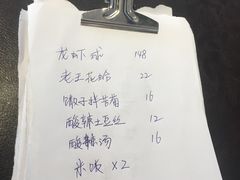 龙虾球 148
老王花蛤 22
馓子拌苦菊 16
酸辣土豆丝 12
酸辣汤 16
米饭 X2